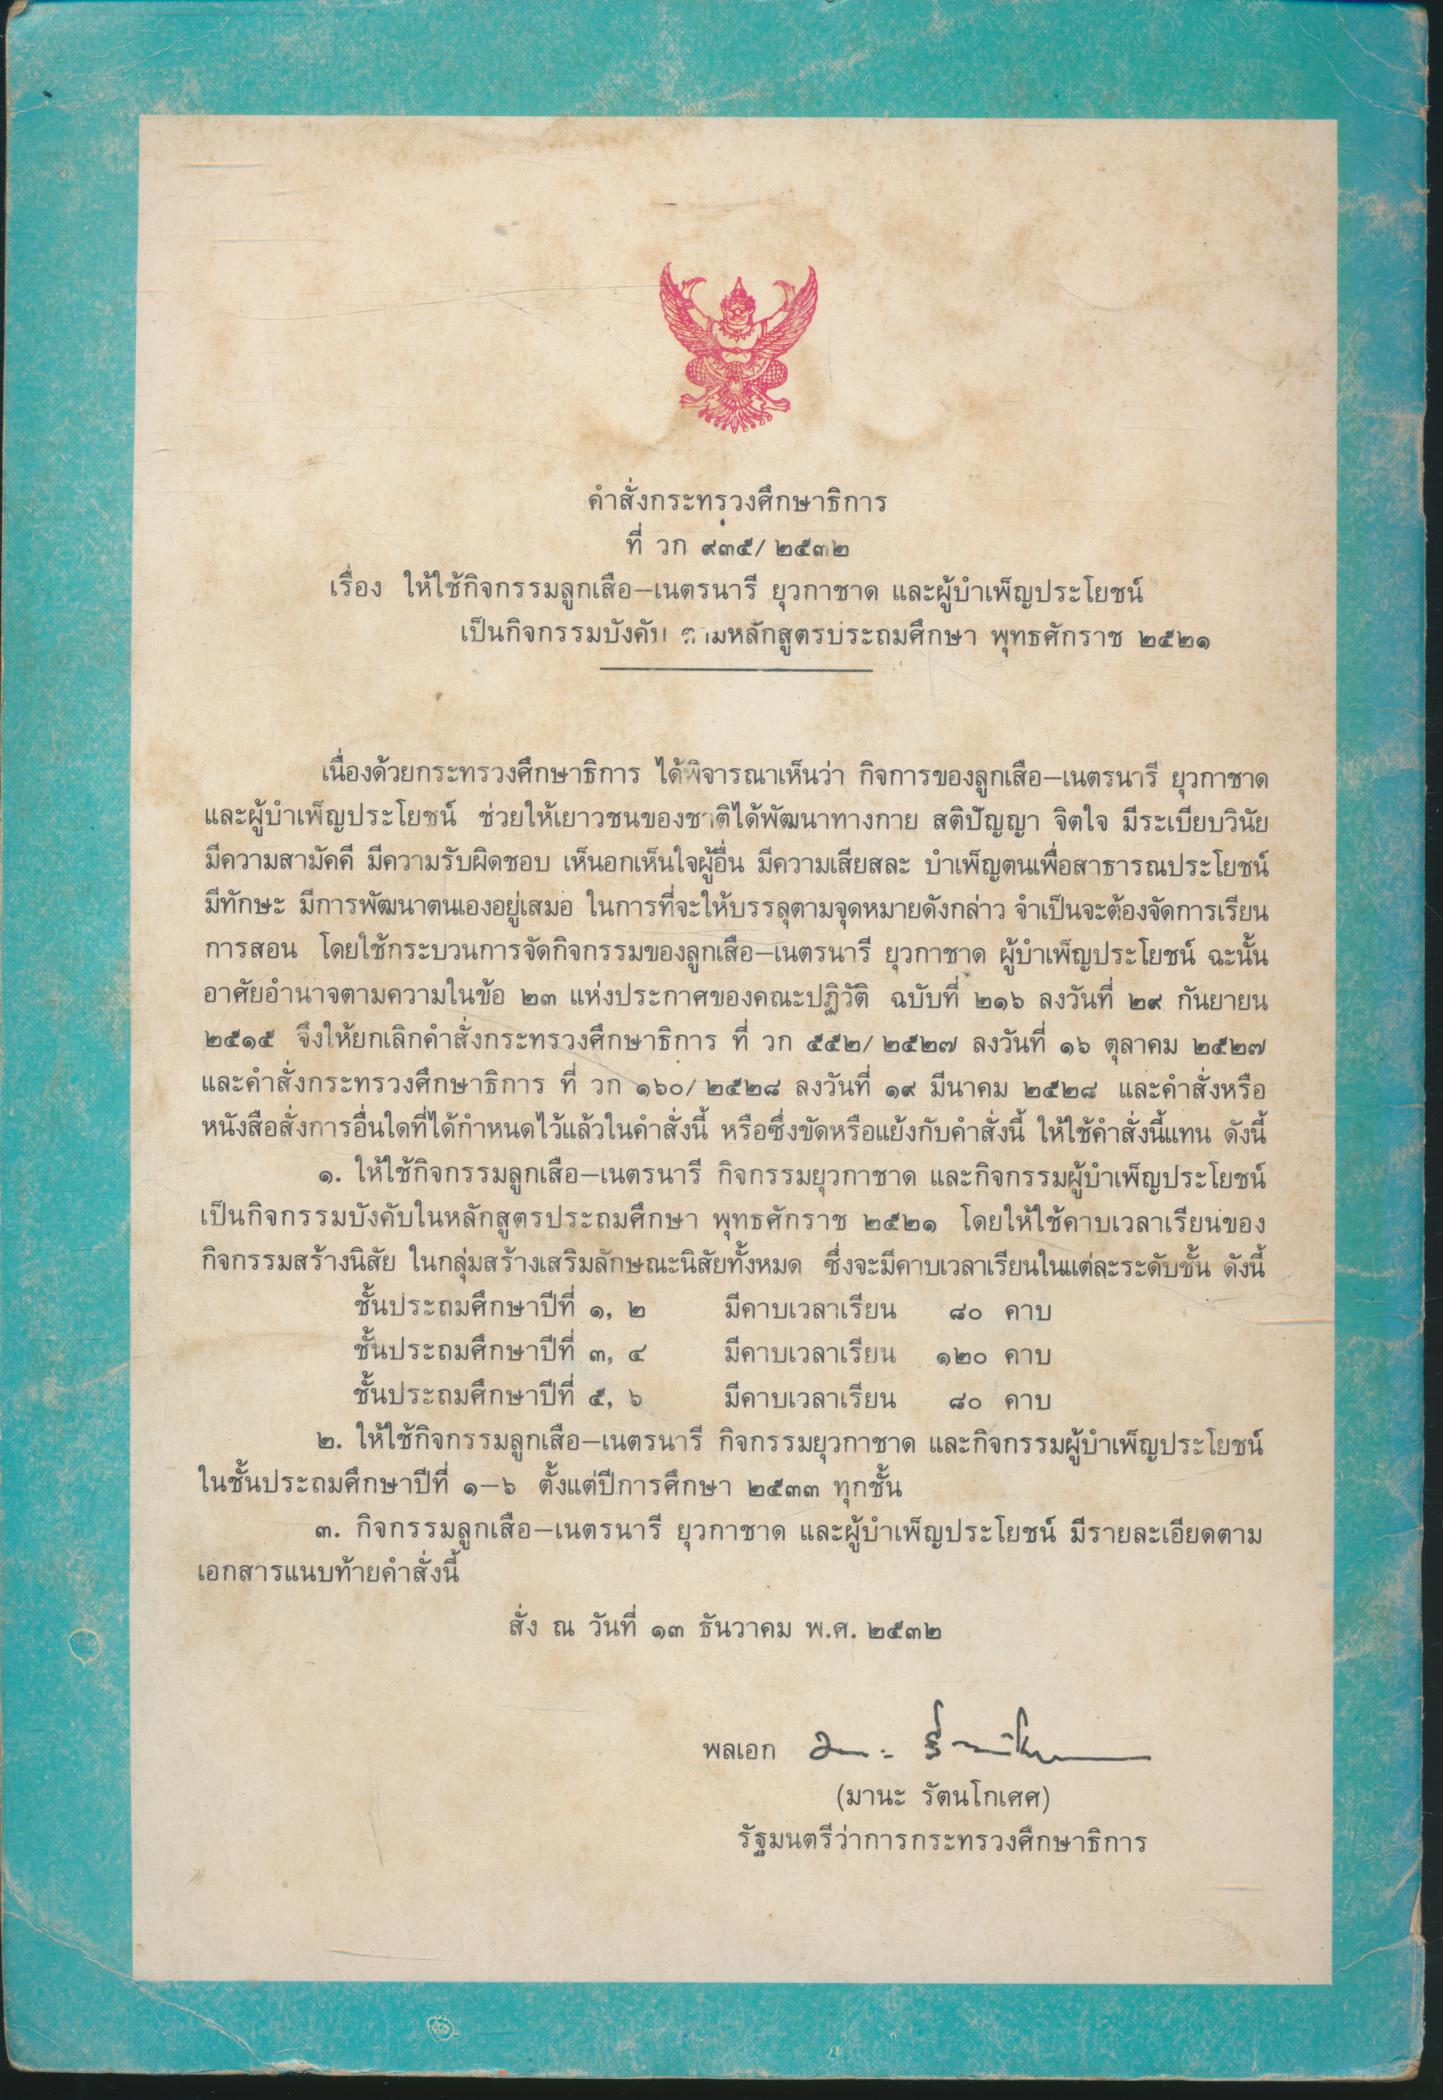 คำสั่งกระทรวงศึกษาธิการ
ที่ วก ๙๓๕/๒๕๓๒
เรื่อง ให้ใช้กิจกรรมลูกเสือ–เนตรนารี ยุวกาชาด และผู้บำเพ็ญประโยชน์
เป็นกิจกรรมบังคับ ตามหลักสูตรประถมศึกษา พุทธศักราช ๒๕๒๑
เนื่องด้วยกระทรวงศึกษาธิการ ได้พิจารณาเห็นว่า กิจการของลูกเสือ–เนตรนารี ยุวกาชาด
และผู้บำเพ็ญประโยชน์ ช่วยให้เยาวชนของชาติได้พัฒนาทางกาย สติปัญญา จิตใจ มีระเบียบวินัย
มีความสามัคคี มีความรับผิดชอบ เห็นอกเห็นใจผู้อื่น มีความเสียสละ บำเพ็ญตนเพื่อสาธารณประโยชน์
มีทักษะ มีการพัฒนาตนเองอยู่เสมอ ในการที่จะให้บรรลุตามจุดหมายดังกล่าว จำเป็นจะต้องจัดการเรียน
การสอน โดยใช้กระบวนการจัดกิจกรรมของลูกเสือ–เนตรนารี ยุวกาชาด ผู้บำเพ็ญประโยชน์ ฉะนั้น
อาศัยอำนาจตามความในข้อ ๒๓ แห่งประกาศของคณะปฏิวัติ ฉบับที่ ๒๑๖ ลงวันที่ ๒๙ กันยายน
๒๕๑๕ จึงให้ยกเลิกคำสั่งกระทรวงศึกษาธิการ ที่ วก ๕๕๒/๒๕๒๗ ลงวันที่ ๑๖ ตุลาคม ๒๕๒๗
และคำสั่งกระทรวงศึกษาธิการ ที่ วก ๑๖๐/๒๕๒๘ ลงวันที่ ๑๙ มีนาคม ๒๕๒๘ และคำสั่งหรือ
หนังสือสั่งการอื่นใดที่ได้กำหนดไว้แล้วในคำสั่งนี้ หรือซึ่งขัดหรือแย้งกับคำสั่งนี้ ให้ใช้คำสั่งนี้แทน ดังนี้
๑. ให้ใช้กิจกรรมลูกเสือ–เนตรนารี กิจกรรมยุวกาชาด และกิจกรรมผู้บำเพ็ญประโยชน์
เป็นกิจกรรมบังคับในหลักสูตรประถมศึกษา พุทธศักราช ๒๕๒๑ โดยให้ใช้คาบเวลาเรียนของ
กิจกรรมสร้างนิสัย ในกลุ่มสร้างเสริมลักษณะนิสัยทั้งหมด ซึ่งจะมีคาบเวลาเรียนในแต่ละระดับชั้น ดังนี้
ชั้นประถมศึกษาปีที่ ๑, ๒ มีคาบเวลาเรียน ๘๐ คาบ
ชั้นประถมศึกษาปีที่ ๓, ๔ มีคาบเวลาเรียน ๑๒๐ คาบ
ชั้นประถมศึกษาปีที่ ๕, ๖ มีคาบเวลาเรียน ๘๐ คาบ
๒. ให้ใช้กิจกรรมลูกเสือ–เนตรนารี กิจกรรมยุวกาชาด และกิจกรรมผู้บำเพ็ญประโยชน์
ในชั้นประถมศึกษาปีที่ ๑–๖ ตั้งแต่ปีการศึกษา ๒๕๓๓ ทุกชั้น
๓. กิจกรรมลูกเสือ–เนตรนารี ยุวกาชาด และผู้บำเพ็ญประโยชน์ มีรายละเอียดตาม
เอกสารแนบท้ายคำสั่งนี้
สั่ง ณ วันที่ ๑๓ ธันวาคม พ.ศ. ๒๕๓๒
พลเอก
(มานะ รัตนโกเศศ)
รัฐมนตรีว่าการกระทรวงศึกษาธิการ